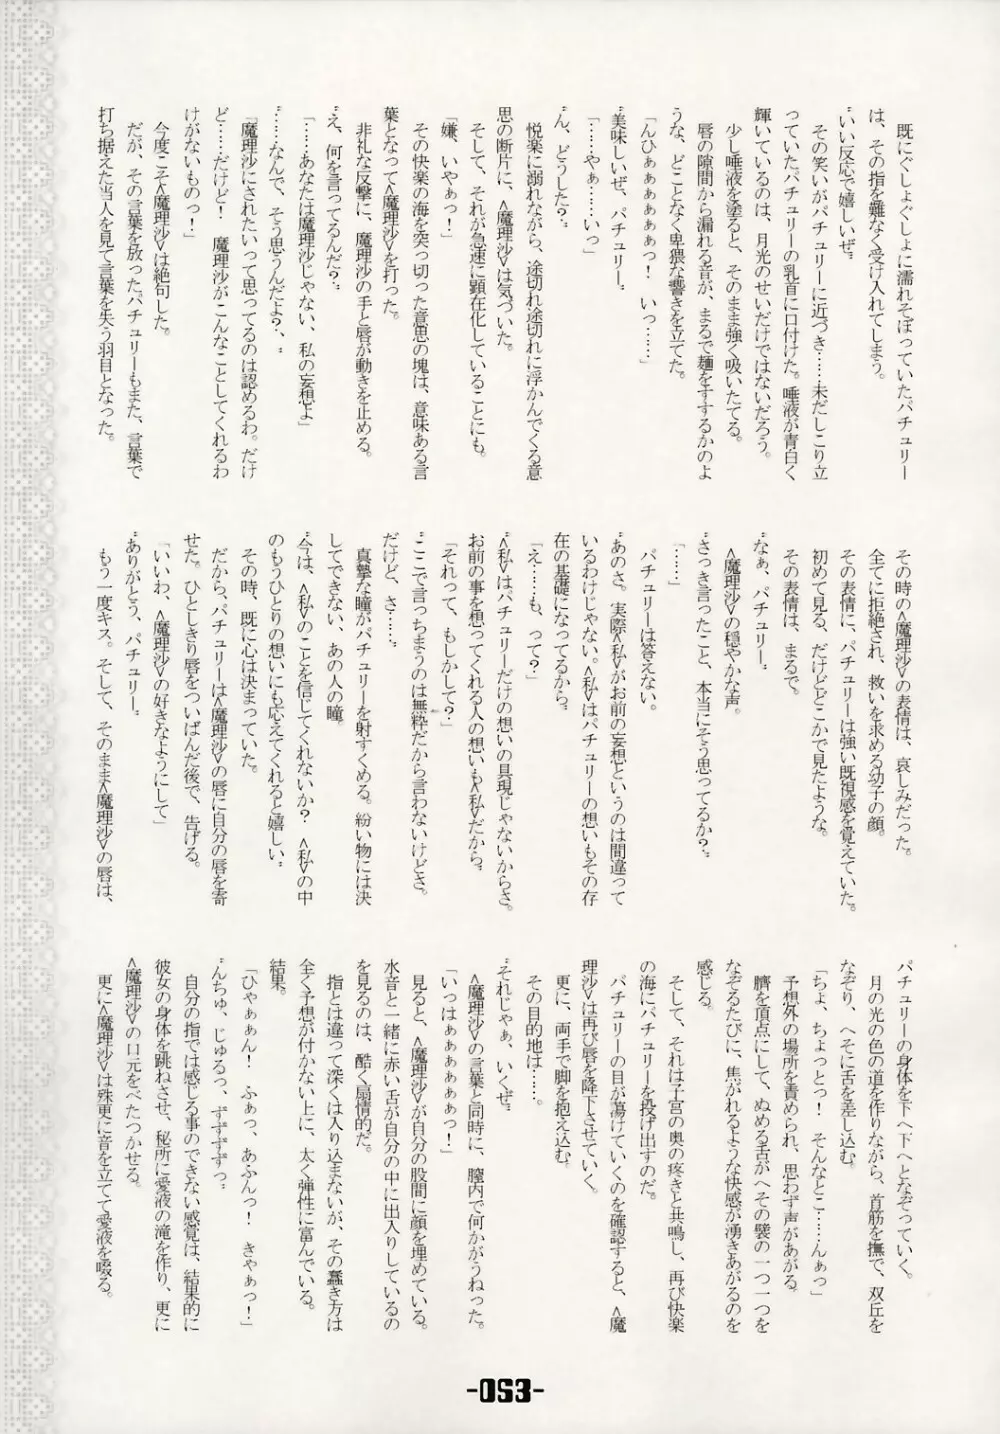 既にぐしょぐしょに濡れそぼっていたパチュリー
は、その指を難なく受け入れてしまう。
〝いい反応で嬉しいぜ〟
その笑いがパチュリーに近づき……未だしこり立
っていたパチュリーの乳首に口付けた。唾液が青白く
輝いているのは、月光のせいだけではないだろう。
少し唾液を塗ると、そのまま強く吸いたてる。
唇の隙間から漏れる音が、まるで麺をすするかのよ
うな、どことなく卑猥な響きを立てた。
「んひぁぁぁぁぁぁっ! いっ……」
〝美味しいぜ、パチュリー〟
「……やぁ……いっ」
〝ん、どうした?〟
悦楽に溺れながら、途切れ途切れに浮かんでくる意
思の断片に、<魔理沙>は気づいた。
そして、それが急速に顕在化していることにも。
「嫌、いやぁっ!」
その快楽の海を突っ切った意思の塊は、意味ある言
葉となって<魔理沙>を打った。
非礼な反撃に、魔理沙の手と唇が動きを止める。
〝え、何を言ってるんだ?〟
「……あなたは魔理沙じゃない、私の妄想よ」
〝……なんで、そう思うんだよ?〟
「魔理沙にされたいって思ってるのは認めるわ。だけ
ど……だけど! 魔理沙がこんなことしてくれるわ
けがないものっ!」
今度こそ<魔理沙>は絶句した。
だが、その言葉を放ったパチュリーもまた、言葉で
打ち据えた当人を見て言葉を失う羽目となった。
その時の<魔理沙>の表情は、哀しみだった。
全てに拒絶され、救いを求める幼子の顔。
その表情に、パチュリーは強い既視感を覚えていた。
初めて見る、だけどどこかで見たような。
その表情は、まるで。
〝なぁ、パチュリー〟
<魔理沙>の穏やかな声。
〝さっき言ったこと、本当にそう思ってるか?〟
「……」
パチュリーは答えない。
〝あのさ。実際<私>がお前の妄想というのは間違って
いるわけじゃない。<私>はパチュリーの想いもその存
在の基礎になってるから〟
「え……も、って?」
〝<私>はパチュリーだけの想いの具現じゃないからさ。
お前の事を想ってくれる人の想いも<私>だから〟
「それって、もしかして?」
〝ここで言っちまうのは無粋だから言わないけどさ。
だけど、さ……〟
真摯な瞳がパチュリーを射すくめる。紛い物には決
してできない、あの人の瞳。
〝今は、<私>のことを信じてくれないか? <私>の中
のもうひとりの想いにも応えてくれると嬉しい〟
その時、既に心は決まっていた。
だから、パチュリーは<魔理沙>の唇に自分の唇を寄
せた。ひとしきり唇をついばんだ後で、告げる。
「いいわ、<魔理沙>の好きなようにして」
〝ありがとう、パチュリー〟
もう一度キス。そして、そのまま<魔理沙>の唇は、
パチュリーの身体を下へ下へとなぞっていく。
月の光の色の道を作りながら、首筋を撫で、双丘を
なぞり、へそに舌を差し込む。
「ちょ、ちょっとっ! そんなとこ……んぁっ」
予想外の場所を責められ、思わず声があがる。
臍を頂点にして、ぬめる舌がへその襞の一つ一つを
なぞるたびに、焦がれるような快感が湧きあがるのを
感じる。
そして、それは子宮の奥の疼きと共鳴し、再び快楽
の海にパチュリーを投げ出すのだ。
パチュリーの目が蕩けていくのを確認すると、<魔
理沙>は再び唇を降下させていく。
更に、両手で脚を抱え込む。
その目的地は……。
〝それじゃぁ、いくぜ〟
<魔理沙>の言葉と同時に、膣内で何かがうねった。
「いっはぁぁぁぁぁぁっ!」
見ると、<魔理沙>が自分の股間に顔を埋めている。
水音と一緒に赤い舌が自分の中に出入りしているの
を見るのは、酷く扇情的だ。
指とは違って深くは入り込まないが、その蠢き方は
全く予想が付かない上に、太く弾性に富んでいる。
結果。
「ひゃぁぁん! ふぁっ、あふんっ! きゃぁっ!」
〝んちゅ、じゅるっ、ずずずっ〟
自分の指では感じる事のできない感覚は、結果的に
彼女の身体を跳ねさせ、秘所に愛液の滝を作り、更に
<魔理沙>の口元をべたつかせる。
更に<魔理沙>は殊更に音を立てて愛液を啜る。
-053-